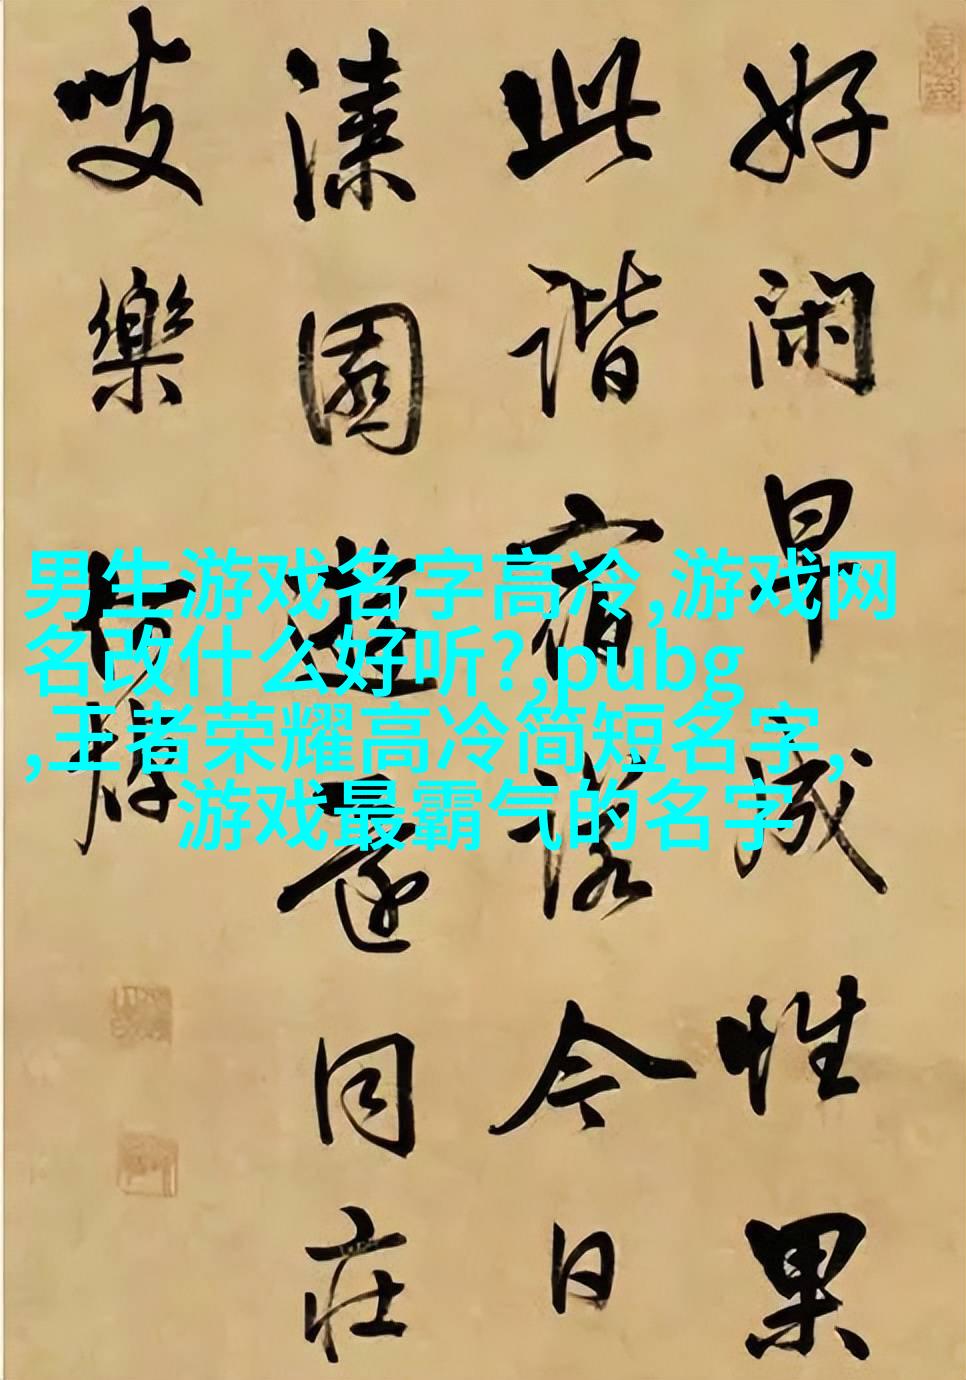 好閑早成性果
此諧宿諾今日
漆園遊還同庄
叟樂
男生游戏名字高冷,游戏网
名改什么好听?,pubg
,王者荣耀高冷简短名字,
游戏最霸气的名字